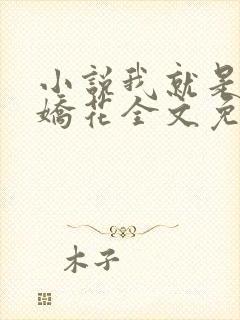 小说我就是
娇花全文免
木子